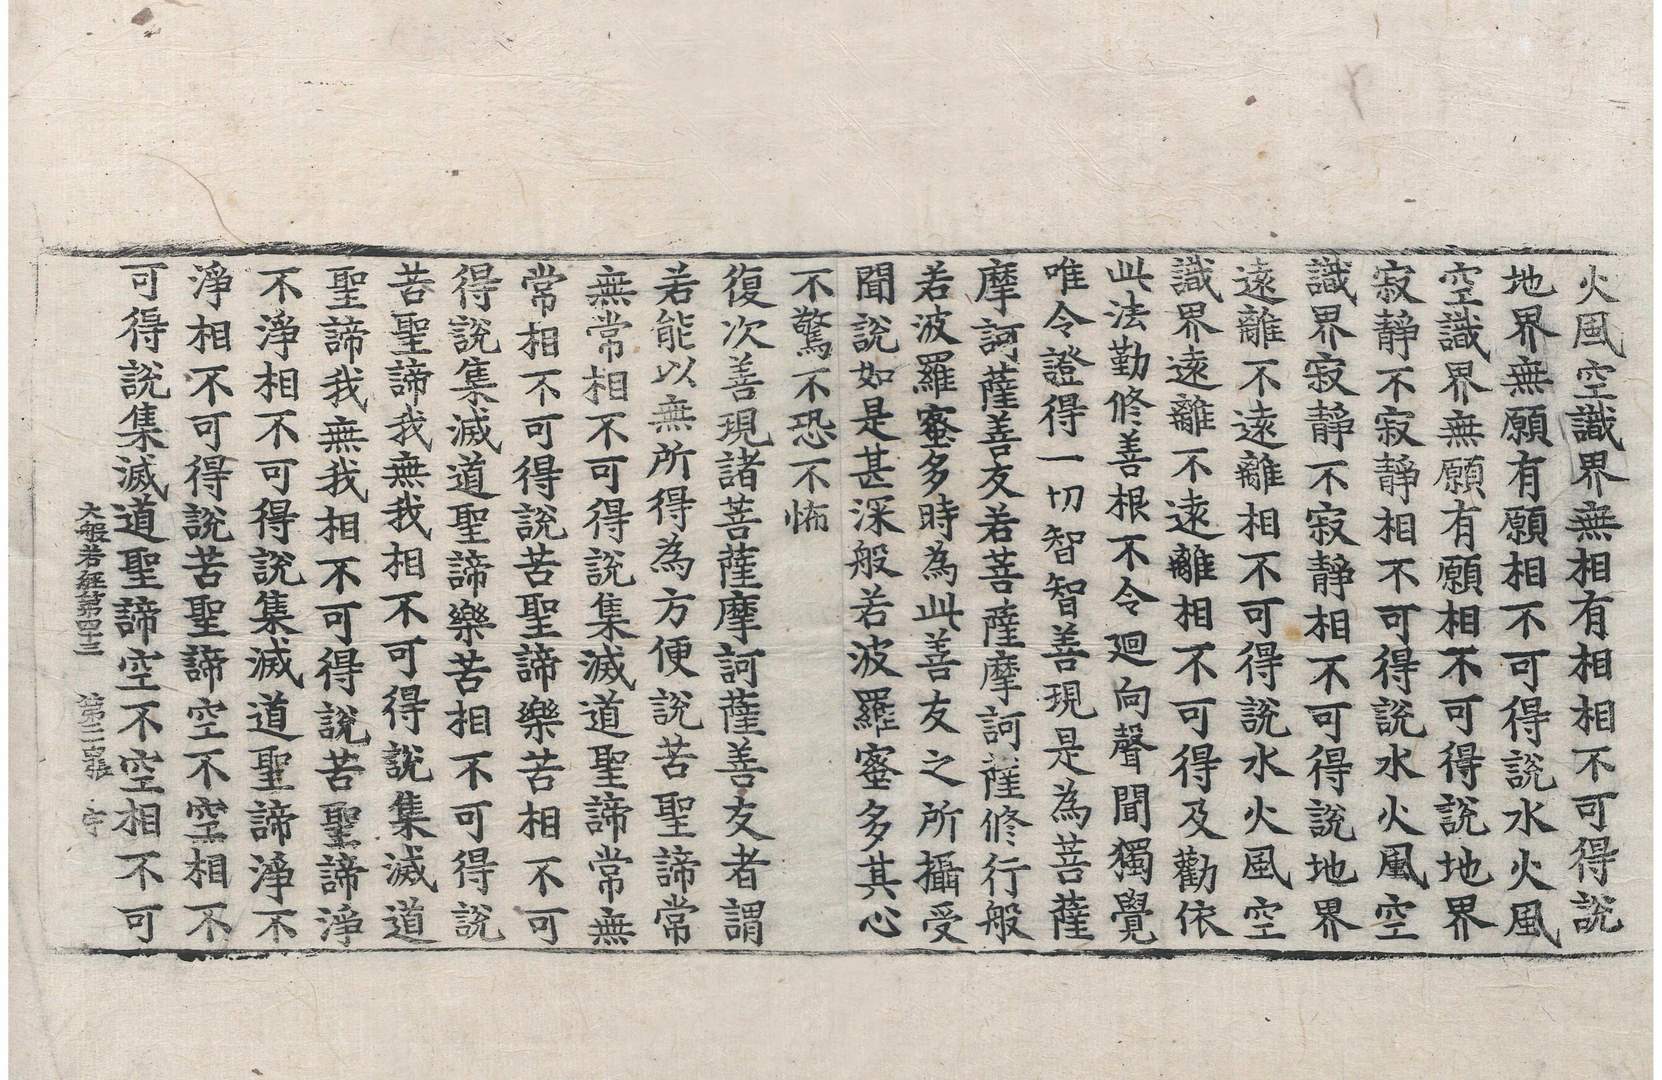 火風空識界無相有相相不可得說
地界無願有願相不可得說水火風
空識界無願有願相不可得說地界
寂靜不寂靜相不可得說水火風空
識界寂靜不寂靜相不可得說地界
遠離不遠離相不可得說水火風空
識界遠離不遠離相不可得及勸依
此法勤修善根不令迴向聲聞獨覺
唯令證得一切智智善現是為菩薩
摩訶薩善友若菩薩摩訶薩修行般
若波羅蜜多時為此善友之所攝受
聞說如是甚深般若波羅蜜多其心
不驚不恐不怖
復次善現諸菩薩摩訶薩善友者謂
若能以無所得為方便說苦聖諦常
無常相不可得說集滅道聖諦常無
常相不可得說苦聖諦樂苦相不可
得說集滅道聖諦樂苦相不可得說
苦聖諦我無我相不可得說集滅道
聖諦我無我相不可得說苦聖諦淨
不淨相不可得說集滅道聖諦淨不
淨相不可得說苦聖諦空不空相不
可得說集滅道聖諦空不空相不可
大般若經第四十三 第二張